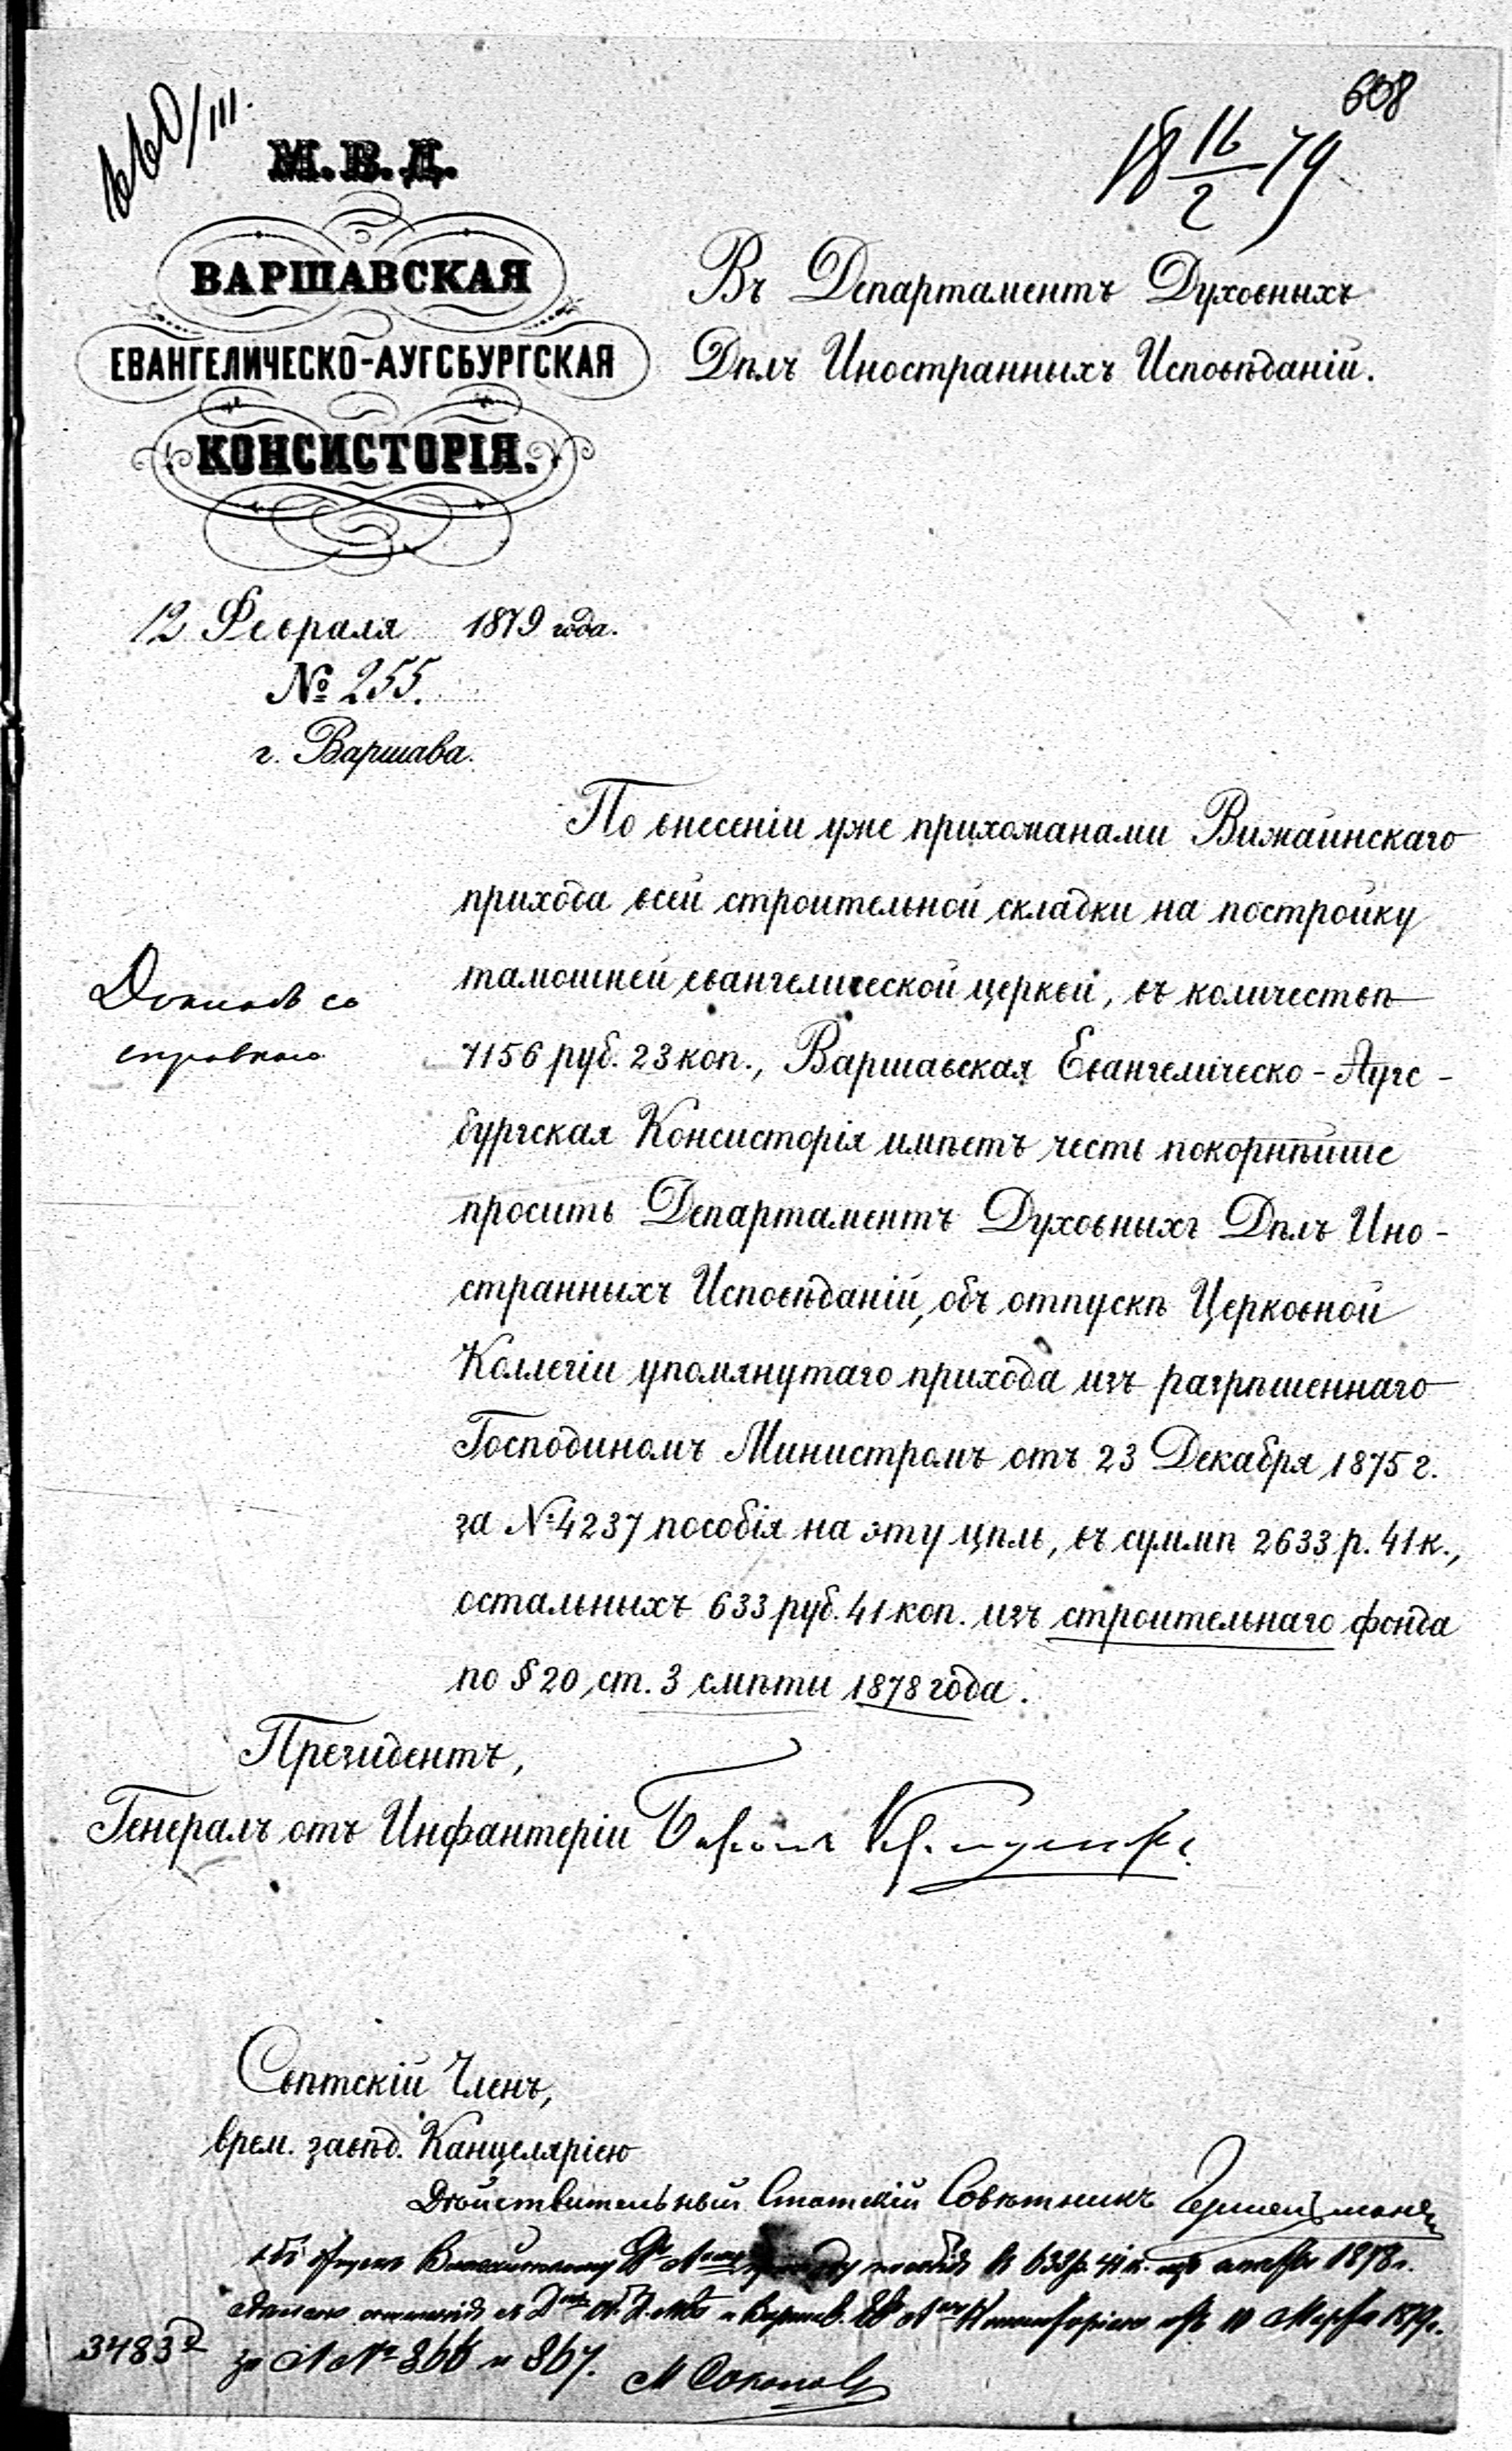 660/III.
608
18 16/2 79
М.В.Д.
ВАРШАВСКАЯ
ЕВАНГЕЛИЧЕСКО-АУГСБУРГСКАЯ
КОНСИСТОРІЯ.
12 Февраля 1879 года.
№ 255.
г. Варшава.
Въ Департаментъ Духовныхъ
Дѣлъ Иностранныхъ Исповѣданій.
По внесеніи уже прихожанами Вижаинскаго
прихода всей строительной складки на постройку
тамошней евангелической церкви, въ количествѣ
7156 руб. 23 коп., Варшавская Евангелическо-Аугс-
бургская Консисторія имѣетъ честь покорнѣйше
просить Департаментъ Духовныхъ Дѣлъ Ино-
странныхъ Исповѣданій, объ отпускѣ Церковной
Коллегіи упомянутаго прихода изъ разрѣшеннаго
Господиномъ Министромъ отъ 23 Декабря 1875 г.
за № 4237 пособія на эту цѣль, въ суммѣ 2633 р. 41 к.,
остальныхъ 633 руб. 41 коп. изъ строительнаго фонда
по § 20, ст. 3 смѣты 1878 года.
справкою
Президентъ,
Генералъ отъ Инфантеріи Баронъ
Свѣтскій Членъ,
врем. завѣд. Канцеляріею
Дѣйствительный Статскій Совѣтникъ
пособія 633 р. 41 к. изъ 1878 г.
10 Марта 1879 г.
34832 за №№ 866 и 867. М Соколов